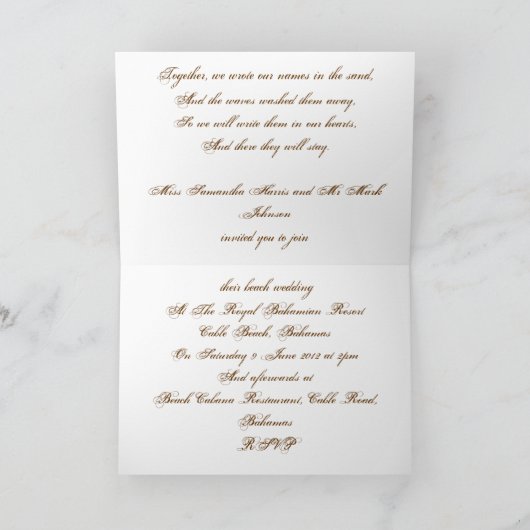 Together, we wrote our names in the sand,
And the waves washed them away,
So we will write them in our hearts,
And there they will stay.
Miss Samantha Harris and Mr Mark
Johnson
invited you to join
their beach wedding
At The Royal Bahamian Resort
Cable Beach, Bahamas
On Saturday 9 June 2012 at 2pm
And afterwards at
Beach Cabana Restaurant, Cable Road,
Bahamas
RSVP